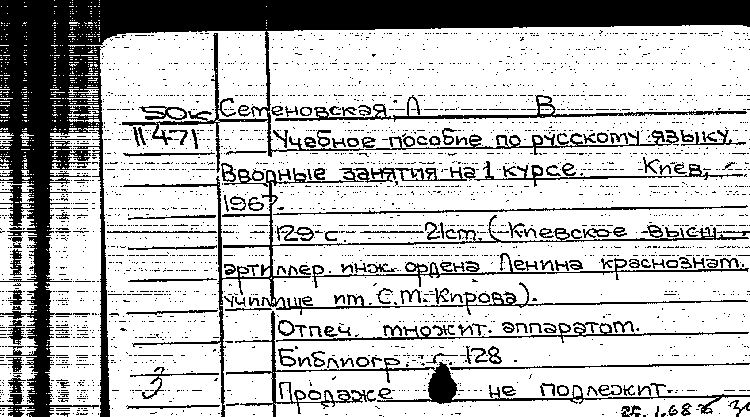 50к Семеновская, Л В
11471 Учебное пособие по русскому языку.
Вводные занятия на 1 курсе. Киев,
1967.
129 с. 21см. (Киевское высш.
артиллер. инж. ордена Ленина краснознам.
училище им. С.М. Кирова).
Отпеч. множит. аппаратом.
Библиогр. с. 128.
3 Продаже не подлежит.